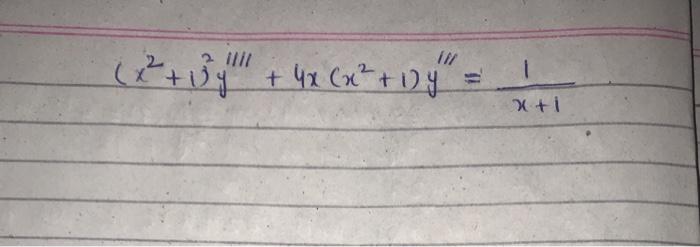 (x²+1)²y'''' + 4x(x²+1)y''' = 1/(x+1)